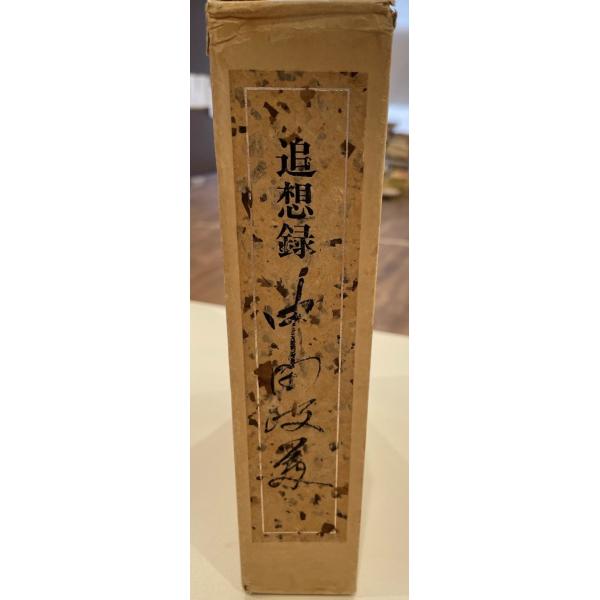 追想録 中田政美